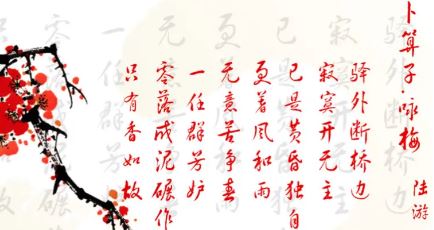 卜算子·咏梅
陆游
驿外断桥边
寂寞开无主
已是黄昏独自
更着风和雨
无意苦争春
一任群芳妒
零落成泥碾作
只有香如故